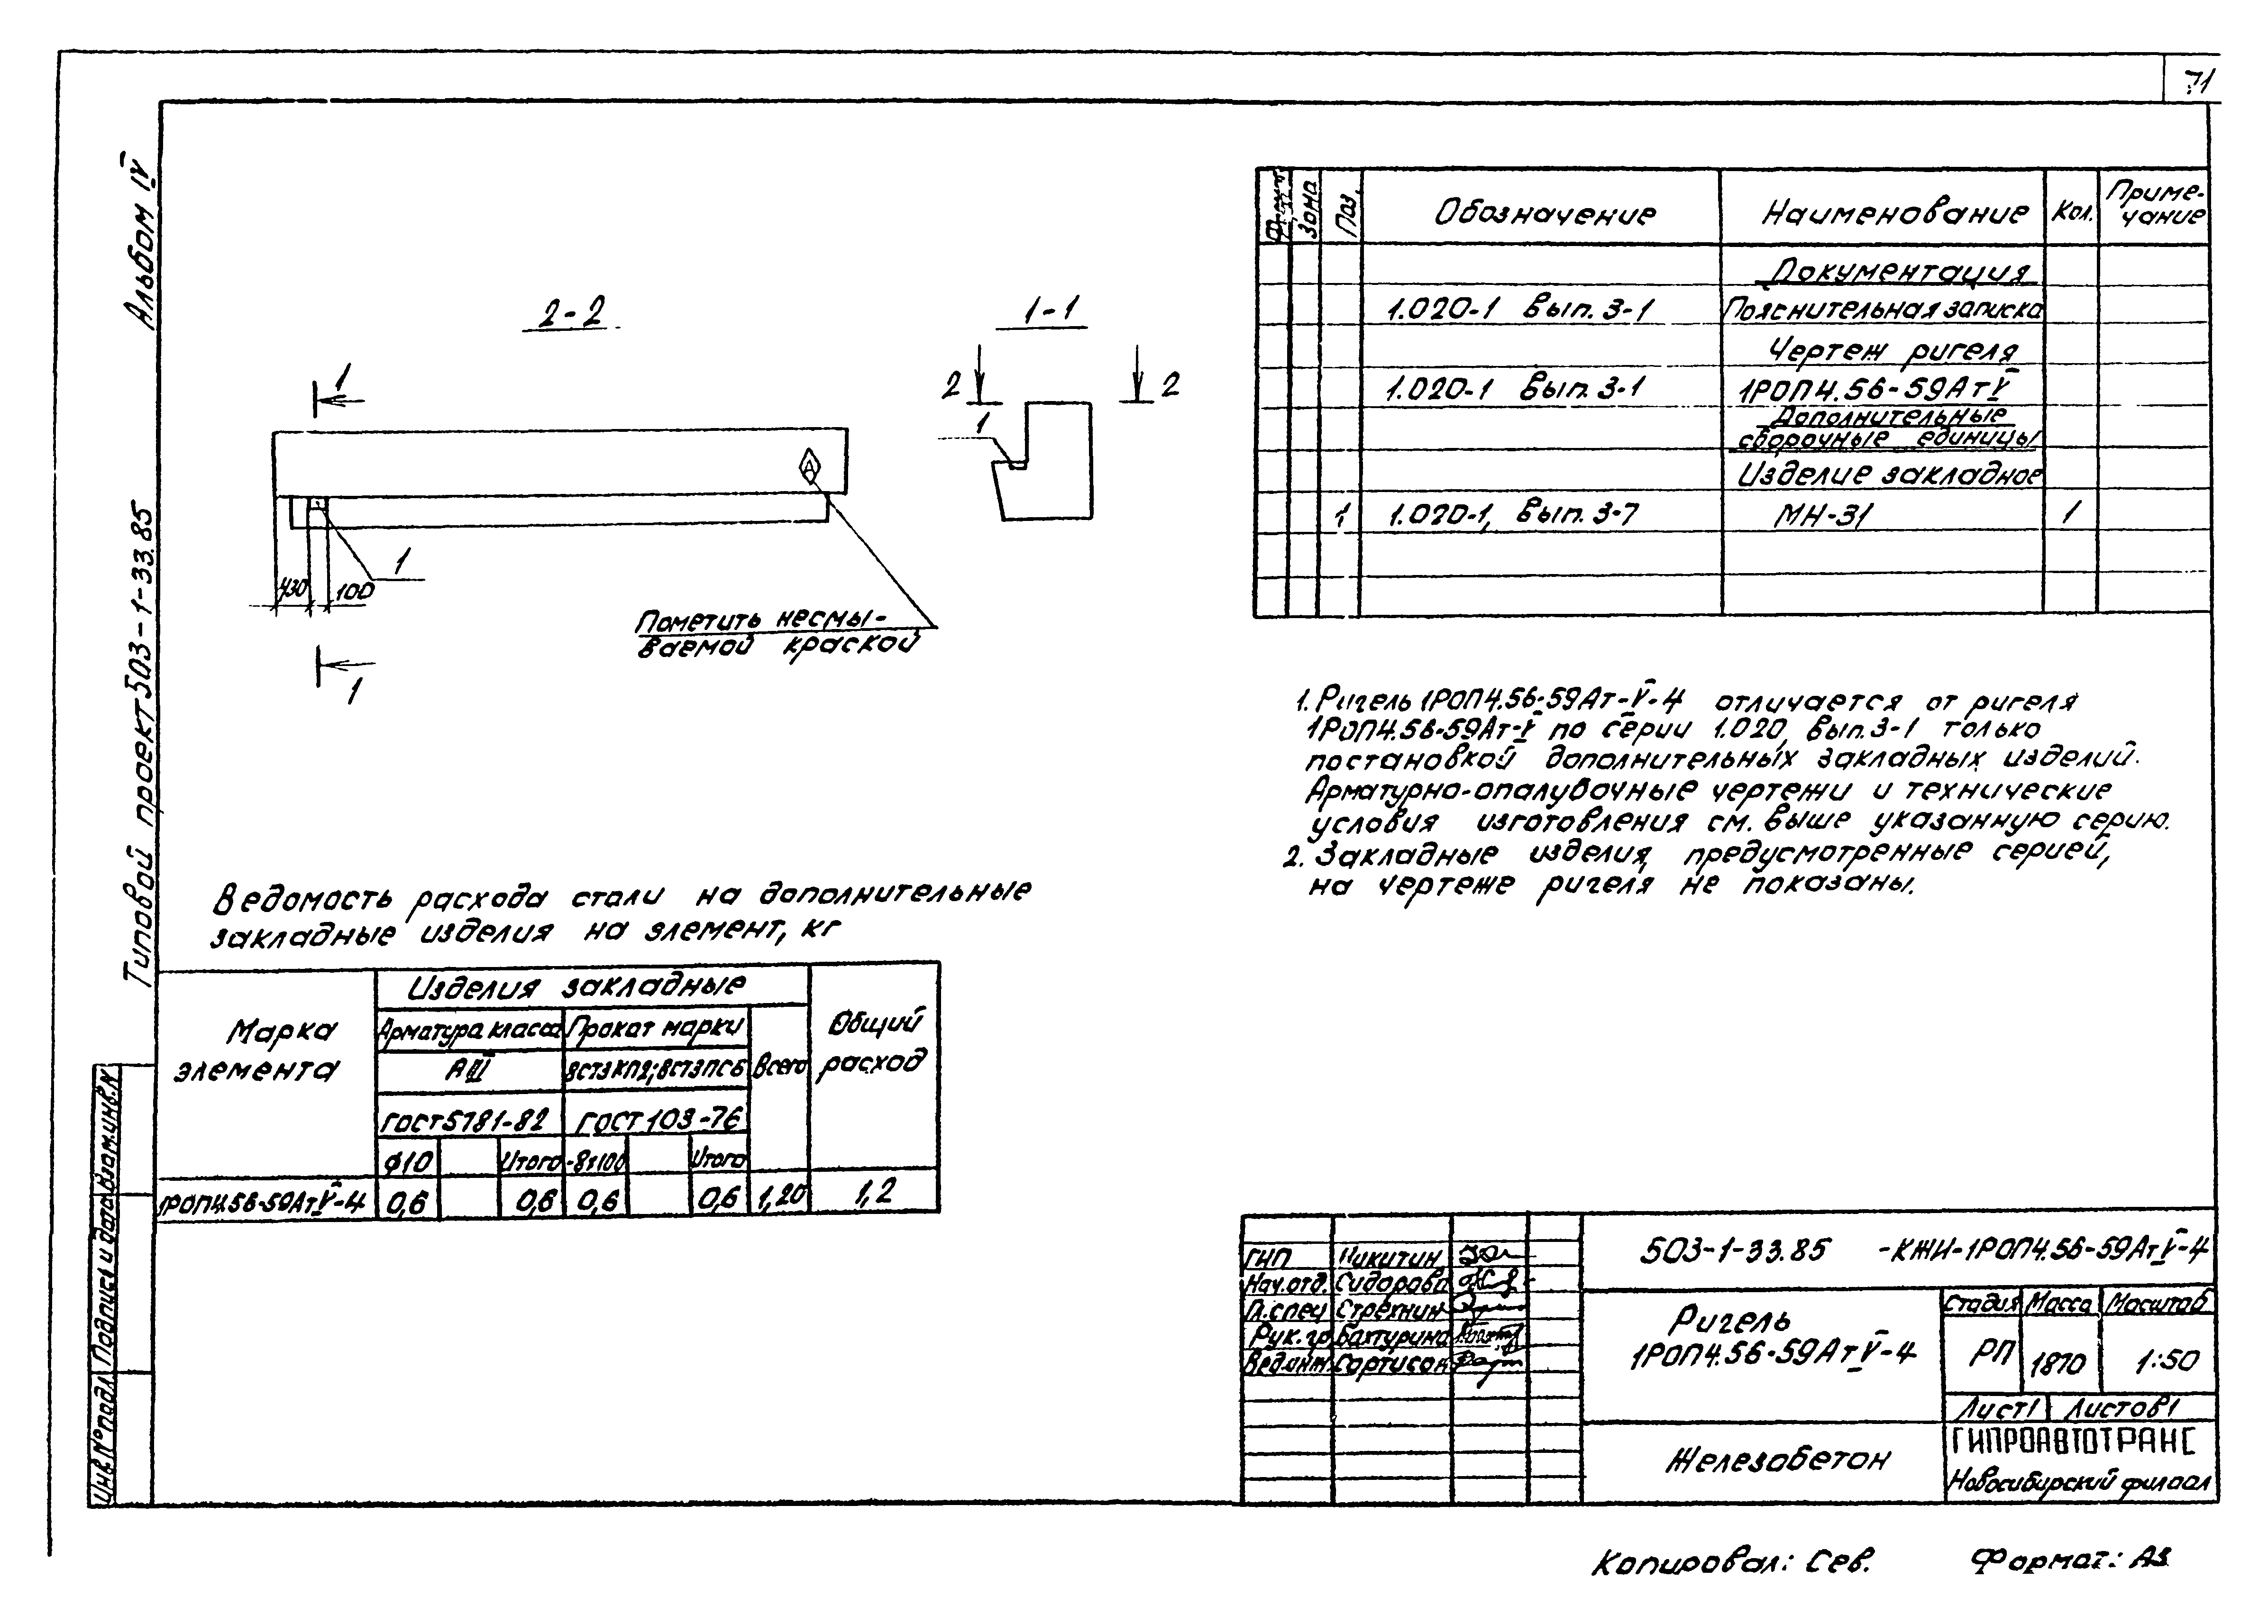 71
Альбом IV
Типовой проект 503-1-33.85
2-2
1-1
1
2
2
1
1
430
100
Пометить несмы-
ваемой краской
1
А
Зона
Поз.
Обозначение
Наименование
Кол.
Приме-
чание
Документация
1.020-1 Вып. 3-1
Пояснительная записка
Чертеж ригеля
1.020-1 Вып. 3-1
1РОП4.56-59АтV
Дополнительные
сборочные единицы
Изделие закладное
1
1.020-1, Вып. 3-7
МН-31
1
1. Ригель 1РОП4.56-59Ат-V-4 отличается от ригеля
1РОП4.56-59Ат-V по серии 1.020, Вып. 3-1 только
постановкой дополнительных закладных изделий.
Арматурно-опалубочные чертежи и технические
условия изготовления см. выше указанную серию.
2. Закладные изделия, предусмотренные серией,
на чертеже ригеля не показаны.
Ведомость расхода стали на дополнительные
закладные изделия на элемент, кг
Марка
элемента
Изделия закладные
Общий
расход
Арматура класса
Прокат марки
Всего
АIII
ВСт3КП2; ВСт3ПС6
ГОСТ 5781-82
ГОСТ 103-76
ф10
Итого
-8х100
Итого
1РОП4.56-59АтV-4
0,6
0,6
0,6
0,6
1,20
1,2
Инв.№ подл.
Подпись и дата
Взам.инв.N
ГИП
Никитин
Нач.отд.
Сидорова
Гл.спец
Стрехнин
Рук.гр.
Бахтурина
Вед.инж.
Сортисон
503-1-33.85 -КЖИ-1РОП4.56-59АтV-4
Ригель
1РОП4.56-59АтV-4
Стадия
Масса
Масштаб
РП
1870
1:50
Лист 1
Листов 1
Железобетон
ГИПРОАВТОТРАНС
Новосибирский филиал
Копировал: Сев.
Формат: А3